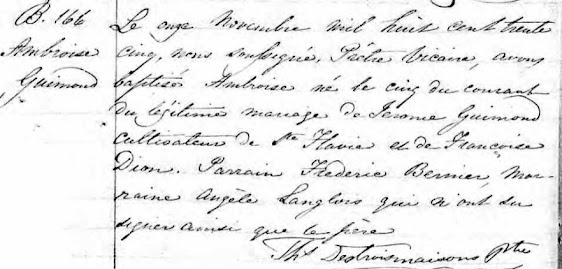 B. 166
Ambroise
Guimond
Le onze Novembre mil huit cent trente
cinq, nous soussigné, Prêtre Vicaire, avons
baptisé Ambroise né le cinq du courant
du légitime mariage de Jerome Guimond
cultivateur de Ste Flavie et de Françoise
Dion. Parrain Frederic Bernier, Mar-
raine Angèle Langlois qui n'ont su
signer ainsi que le père
Ths Destroismaisons Ptre